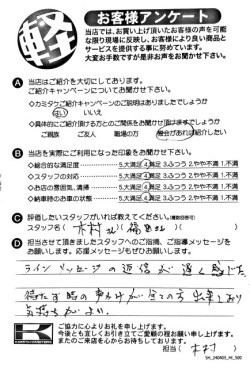 軽
お客様アンケート
当店では、お買い上げ頂いたお客様の声を可能
な限り現場に反映し、お客様により良い商品と
サービスを提供する事に努めています。
大変お手数ですが是非お声をお聞かせ下さい。
A 当店はご紹介を大切にしております。
ご紹介キャンペーンについてお聞かせ下さい。
◇カミタケご紹介キャンペーンのご説明はありましたでしょうか
はい いいえ
◇具体的にご紹介頂ける方とのご関係をお聞かせ頂けますでしょうか
ご親族 ご友人 職場の方 機会があれば紹介したい
B 当店を実際にご利用になった印象をお聞かせ下さい。
◇総合的な満足度 5.大満足 4.満足 3.ふつう 2.やや不満 1.不満
◇スタッフの対応 5.大満足 4.満足 3.ふつう 2.やや不満 1.不満
◇お店の雰囲気、清掃 5.大満足 4.満足 3.ふつう 2.やや不満 1.不満
◇納車時のお車の状態 5.大満足 4.満足 3.ふつう 2.やや不満 1.不満
C 評価したいスタッフがいれば教えてください。(複数回答可)
スタッフ名( 木村さん
D 担当させて頂きましたスタッフへのご指摘、ご指導メッセージを
お願いします。応援メッセージもぜひお願いします。
ラインメッセージの返信が速く感じた。
待たす時の声かけが全ての方出来しおり
気持ちがよい。
ご協力に心よりお礼を申し上げます。
今後とも宜しくお引き立てご愛顧の程お願い申し上げます。
またのご来店を心からお待ちしております。
担当( 木村 )